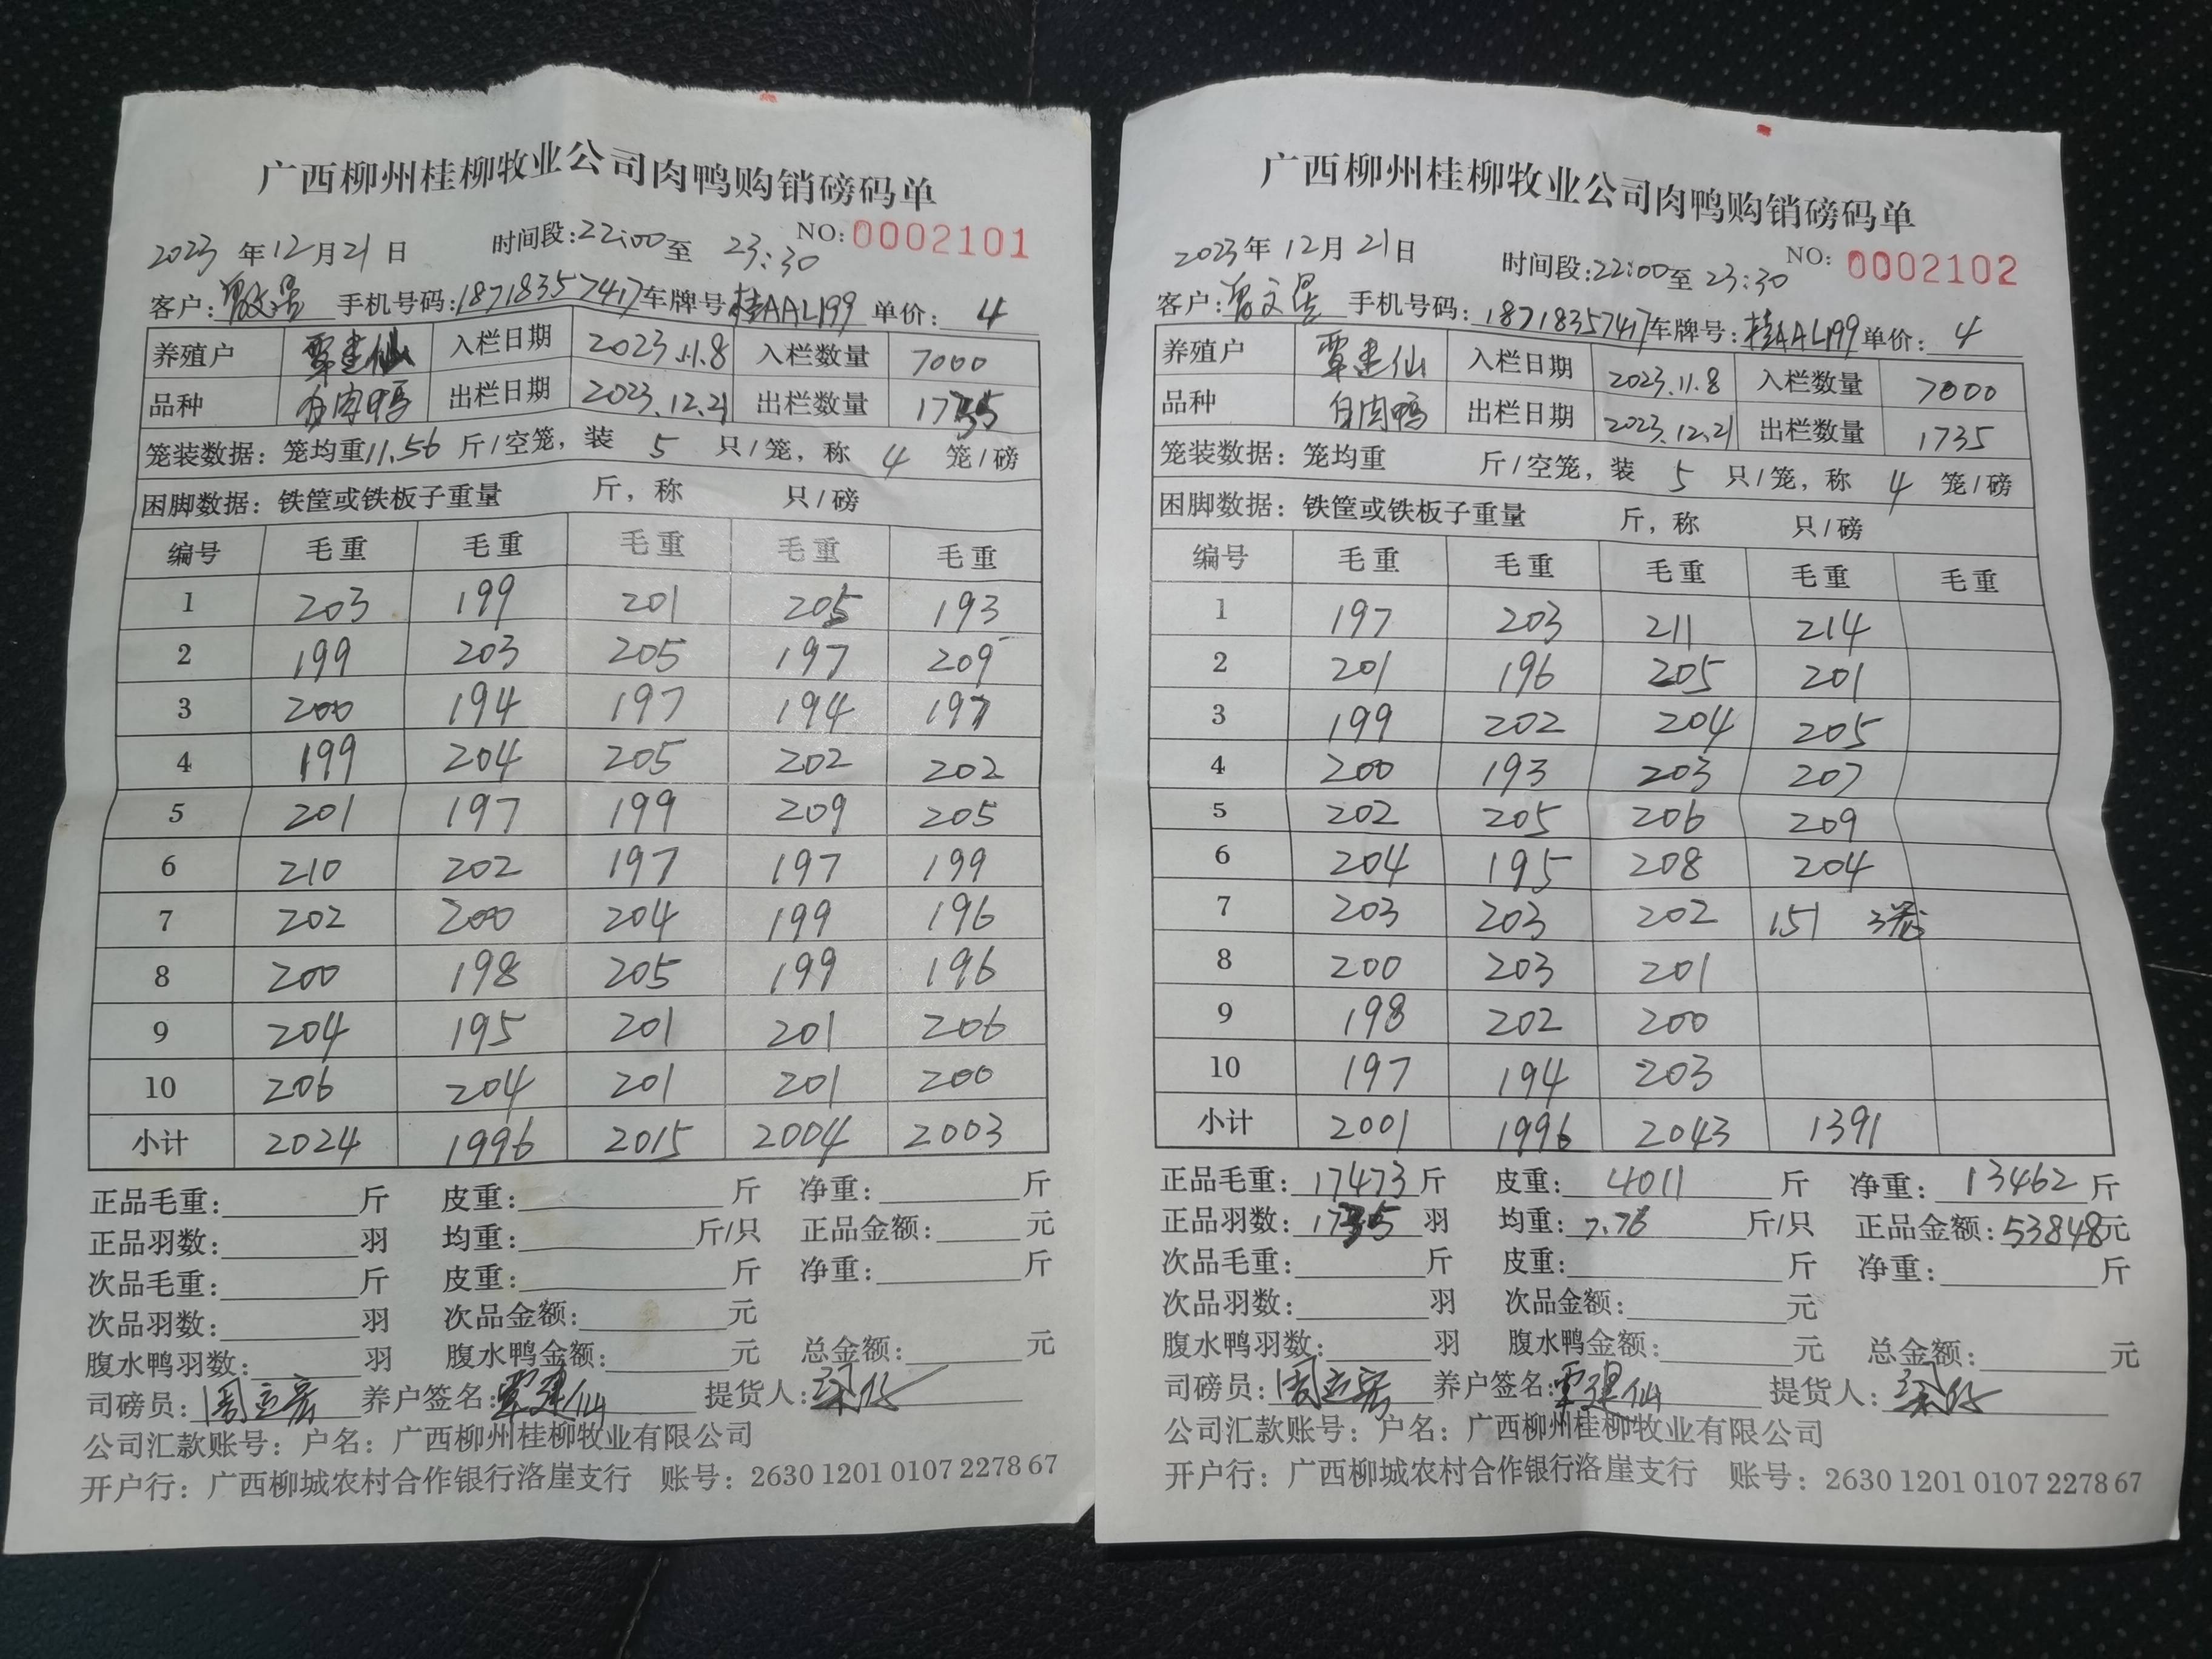 广西柳州桂柳牧业公司肉鸭购销磅码单
2023 年 12 月 21 日 时间段:22:00 至 23:30 NO: 0002101
客户: 手机号码:18718357417 车牌号 桂AAL199 单价: 4
养殖户 覃建仙 入栏日期 2023.11.8 入栏数量 7000
品种 白肉鸭 出栏日期 2023.12.21 出栏数量 1735
笼装数据: 笼均重 11.56 斤/空笼, 装 5 只/笼, 称 4 笼/磅
困脚数据: 铁筐或铁板子重量 斤, 称 只/磅
编号 毛重 毛重 毛重 毛重 毛重
1 203 199 201 205 193
2 199 203 205 197 209
3 200 194 197 194 197
4 199 204 205 202 202
5 201 197 199 209 205
6 210 202 197 197 199
7 202 200 204 199 196
8 200 198 205 199 196
9 204 195 201 201 206
10 206 204 201 201 200
小计 2024 1996 2015 2004 2003
正品毛重: 斤 皮重: 斤 净重: 斤
正品羽数: 羽 均重: 斤/只 正品金额: 元
次品毛重: 斤 皮重: 斤 净重: 斤
次品羽数: 羽 次品金额: 元
腹水鸭羽数: 羽 腹水鸭金额: 元 总金额: 元
司磅员: 周立宏 养户签名: 覃建仙 提货人:
公司汇款账号: 户名: 广西柳州桂柳牧业有限公司
开户行: 广西柳城农村合作银行洛崖支行 账号: 2630 1201 0107 2278 67
广西柳州桂柳牧业公司肉鸭购销磅码单
2023 年 12 月 21 日 时间段:22:00 至 23:30 NO: 0002102
客户: 手机号码: 18718357417 车牌号: 桂AAL199 单价: 4
养殖户 覃建仙 入栏日期 2023.11.8 入栏数量 7000
品种 白肉鸭 出栏日期 2023.12.21 出栏数量 1735
笼装数据: 笼均重 斤/空笼, 装 5 只/笼, 称 4 笼/磅
困脚数据: 铁筐或铁板子重量 斤, 称 只/磅
编号 毛重 毛重 毛重 毛重 毛重
1 197 203 211 214
2 201 196 205 201
3 199 202 204 205
4 200 193 203 207
5 202 205 206 209
6 204 195 208 204
7 203 203 202 151 3笼
8 200 203 201
9 198 202 200
10 197 194 203
小计 2001 1996 2043 1391
正品毛重: 17473 斤 皮重: 4011 斤 净重: 13462 斤
正品羽数: 1735 羽 均重: 7.76 斤/只 正品金额: 53848 元
次品毛重: 斤 皮重: 斤 净重: 斤
次品羽数: 羽 次品金额: 元
腹水鸭羽数: 羽 腹水鸭金额: 元 总金额: 元
司磅员: 周立宏 养户签名: 覃建仙 提货人:
公司汇款账号: 户名: 广西柳州桂柳牧业有限公司
开户行: 广西柳城农村合作银行洛崖支行 账号: 2630 1201 0107 2278 67